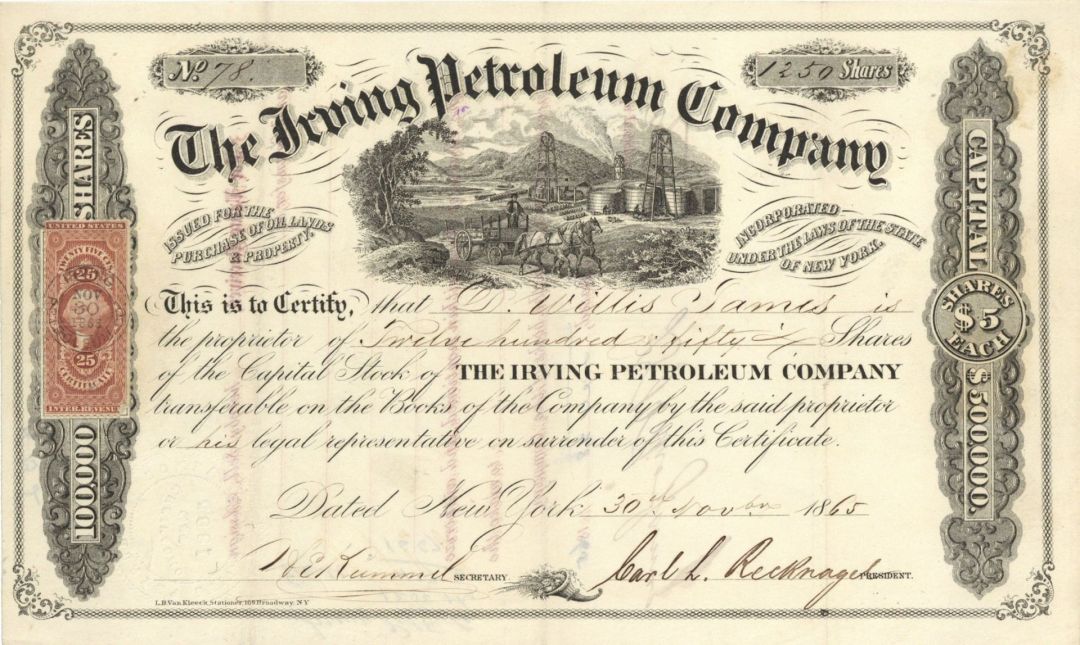 No 78.
1250 Shares
The Irving Petroleum Company
ISSUED FOR THE
PURCHASE OF OIL LANDS
& PROPERTY.
INCORPORATED
UNDER THE LAWS OF THE STATE
OF NEW YORK.
100,000 SHARES
UNITED STATES
TWENTY FIVE CENTS
25
NOV
30
25
CERTIFICATE
INTER. REVENUE
CAPITAL $500,000.
SHARES
$5
EACH
This is to Certify, that D. Willis James is
the proprietor of Twelve hundred & fifty Shares
of the Capital Stock of THE IRVING PETROLEUM COMPANY
transferable on the Books of the Company by the said proprietor
or his legal representative on surrender of this Certificate.
Dated New York 30th Novbr 1865
Kümmel SECRETARY
Carl L. Recknagel PRESIDENT.
L.B. Van Kleeck, Stationer, 169 Broadway. N.Y